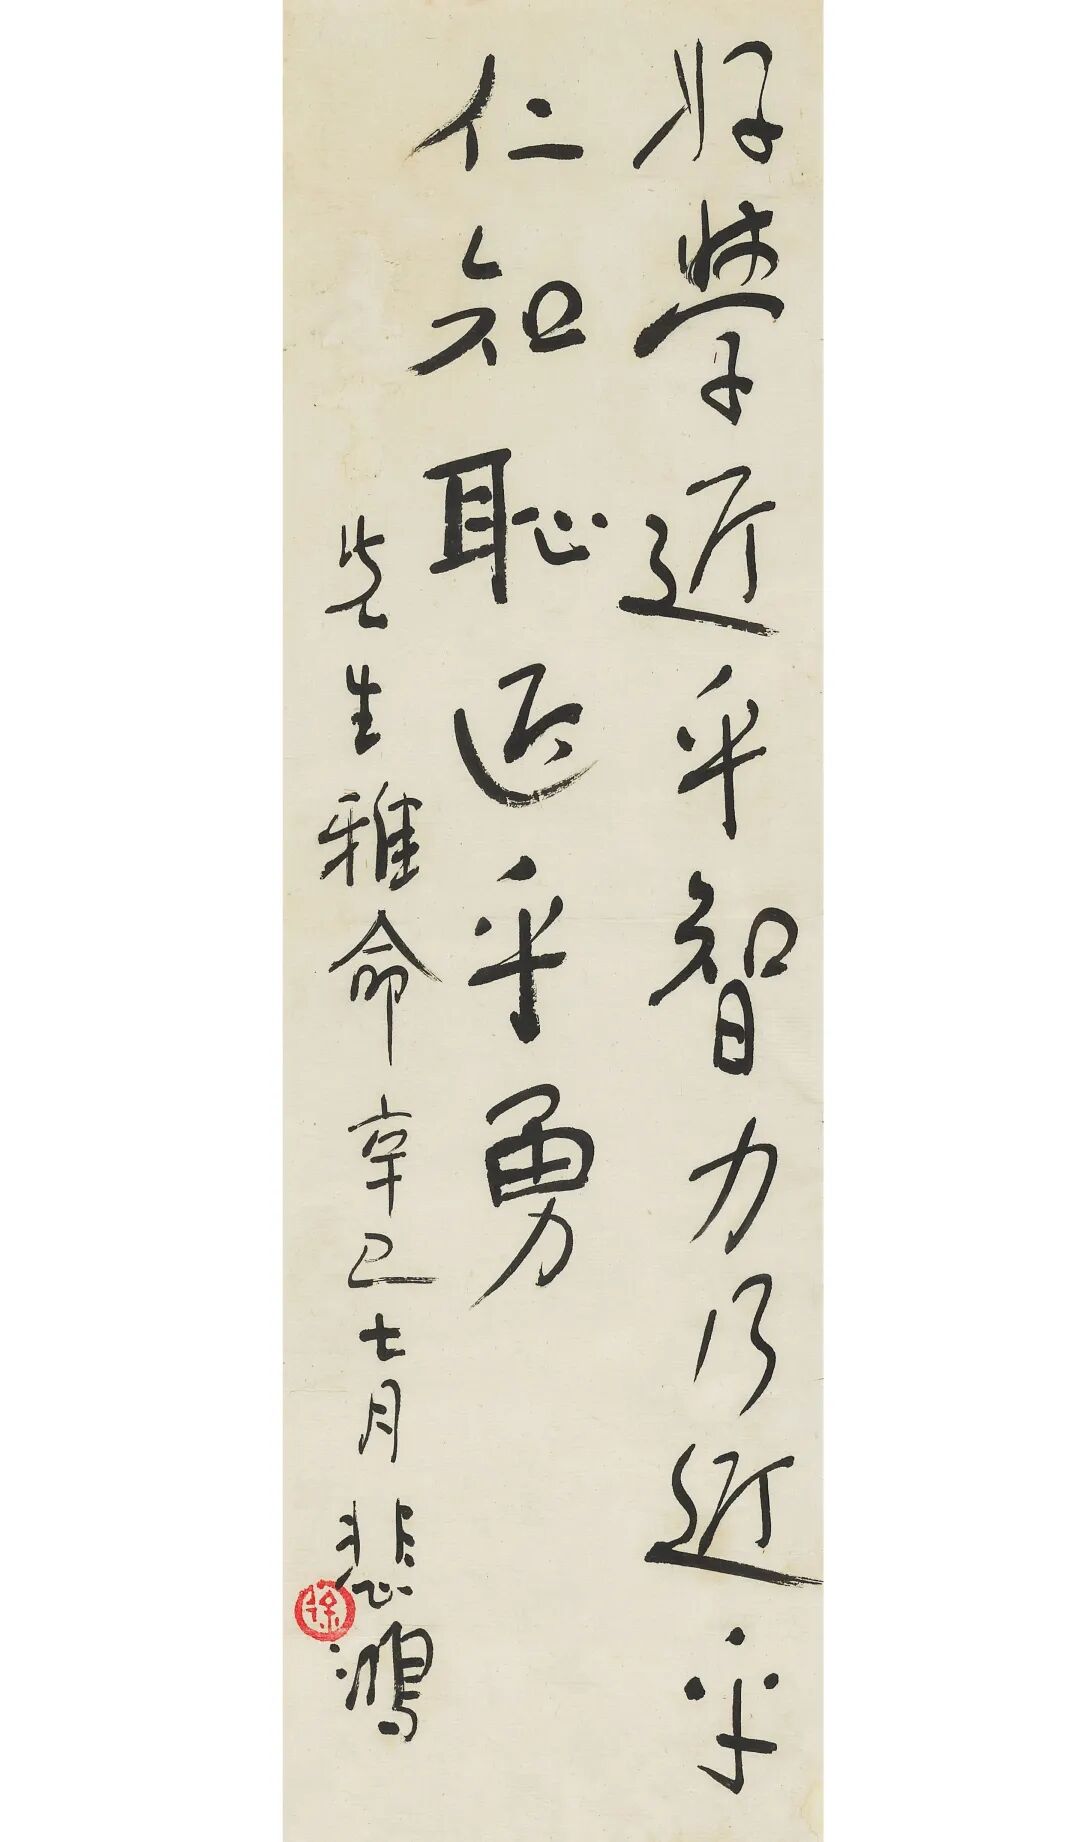 好學近乎智力行近乎
仁知恥近乎勇
先生雅命辛巳七月悲鴻
徐